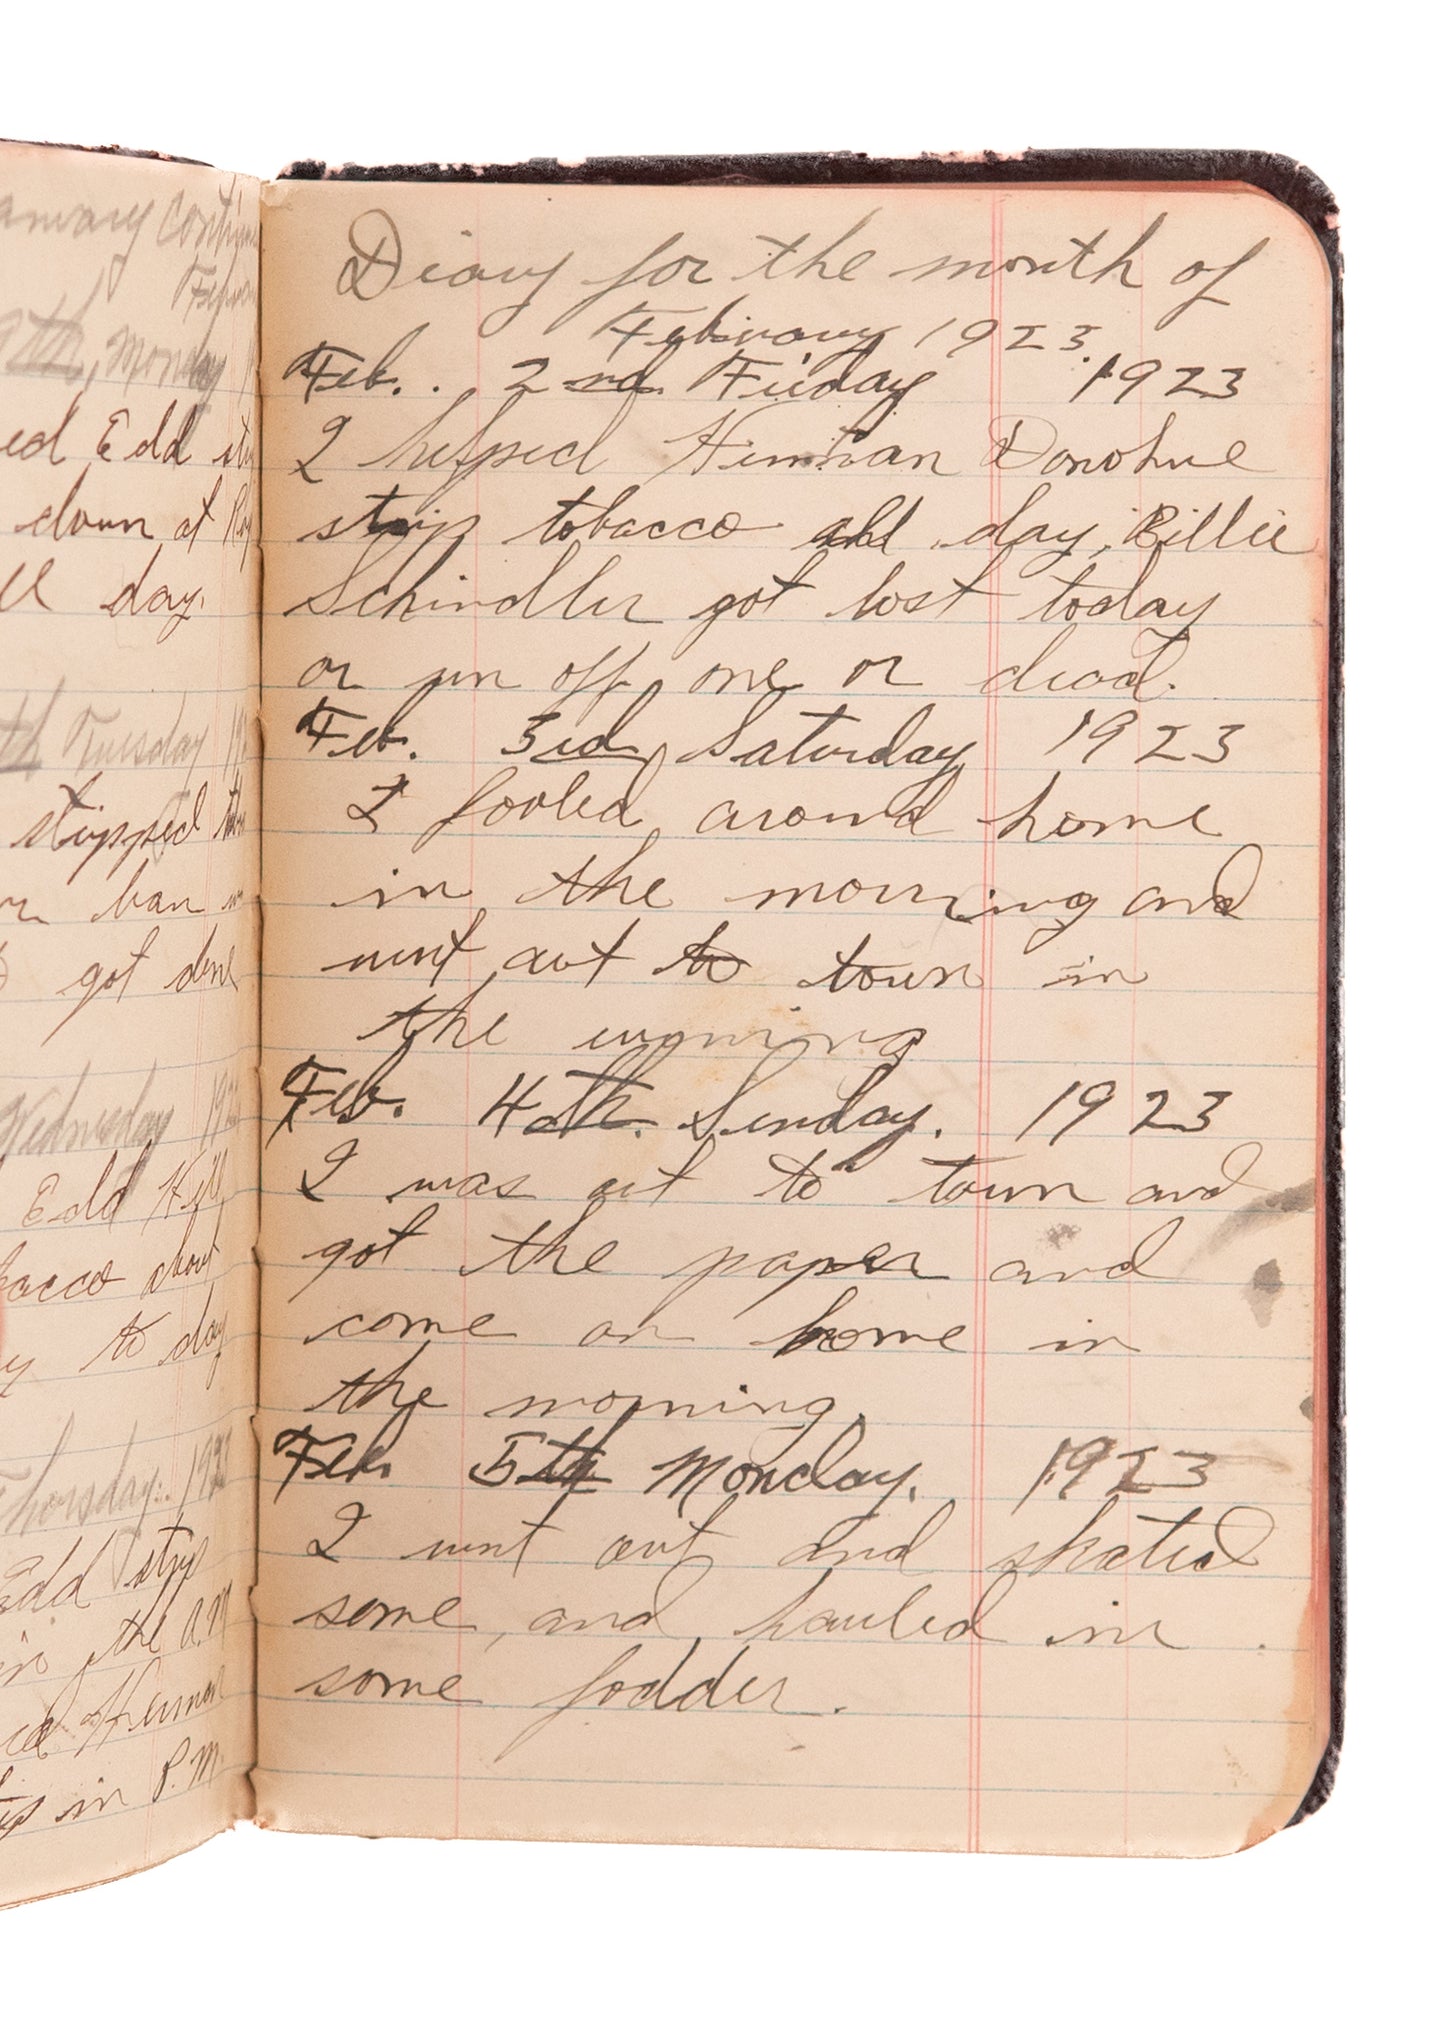 anuary Contin
th, Monday
ed Edd
down at
ll day.
th Tuesday
stripped
ban
got done
Wednesday
Edd
bacco about
to day
Thorsday. 192
Edd strip
in the A.M
Herman
in P.M.
Diary for the month of
February 1923.
Feb. . 2nd Friday 1923
I helped Herman Donohue
strip tobacco all day, Billie
Schindler got lost today
or run off, one or dead.
Feb. 3rd, Saturday 1923
I fooled around home
in the morning and
went out to town in
the
Feb. 4th. Sunday. 1923
I was out to town and
got the paper and
come on home in
the morning.
Feb. 5th Monday. 1923
I went out and skated
some, and hauled in
some fodder.